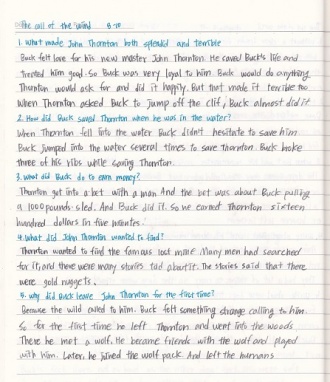 The call of the wild 8-10
1. What made John Thornton both splendid and terrible
Buck felt love for his new master John Thornton. He saved Buck's life and
treated him good. So Buck was very loyal to him. Buck would do anything
Thornton would ask for and did it happily. But that made it terrible too
When Thornton asked Buck to jump off the clif, Buck almost did it.
2. How did Buck saved Thornton when he was in the water?
When Thornton fell into the water Buck didn't hesitate to save him
Buck jumped into the water several times to save Thornton. Buck broke
three of his ribs while saving Thornton.
3. What did Buck do to earn money?
Thornton got into a bet with a man And the bet was about Buck pulling
a 1000 pounds sled. And Buck did it. So he earned Thornton sixteen
hundred dollars in five minutes.
4. What did John Thornton wanted to find?
Thornton wanted to find the famous lost mine Many men had searched
for it, and there were many stories told about it. The stories said that there
were gold nuggets.
5. Why did Buck leave John Thornton for the first time?
Because the wild called to him. Buck felt something strange calling to him.
So for the first time he left Thornton and went into the woods
There he met a wolf. He became friends with the wolf and played
with him. Later, he joined the wolf pack And left the humans